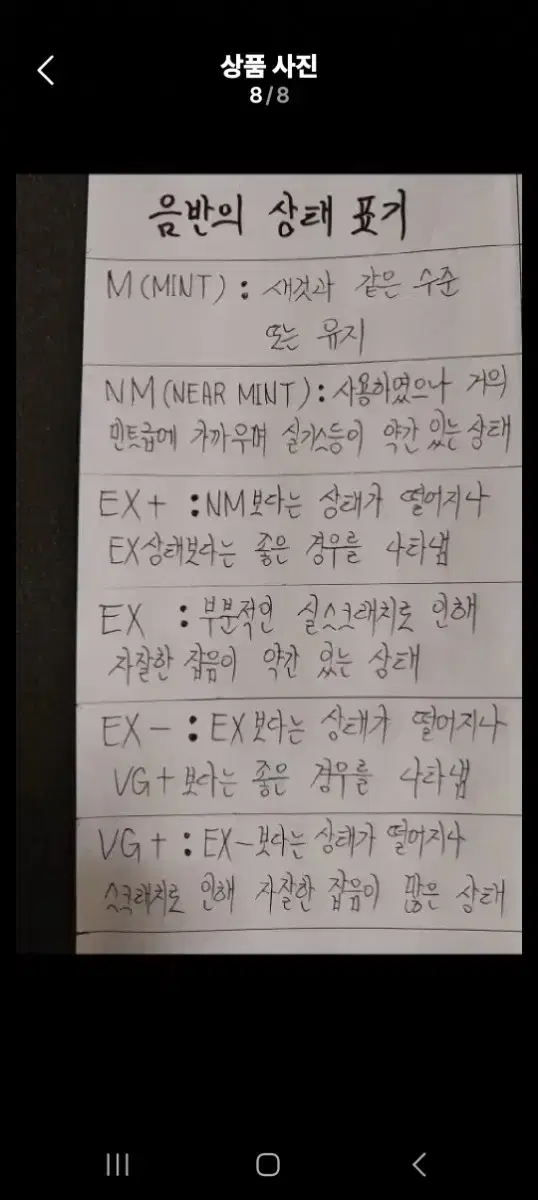 상품 사진
8/8
음반의 상태 표기
M(MINT) : 새것과 같은 수준
또는 유지
NM(NEAR MINT) : 사용하였으나 거의
민트급에 가까우며 실기스등이 약간 있는 상태
EX+ : NM보다는 상태가 떨어지나
EX상태보다는 좋은 경우를 나타냄
EX : 부분적인 실스크래치로 인해
자잘한 잡음이 약간 있는 상태
EX- : EX보다는 상태가 떨어지나
VG+보다는 좋은 경우를 나타냄
VG+ : EX-보다는 상태가 떨어지나
스크래치로 인해 자잘한 잡음이 많은 상태